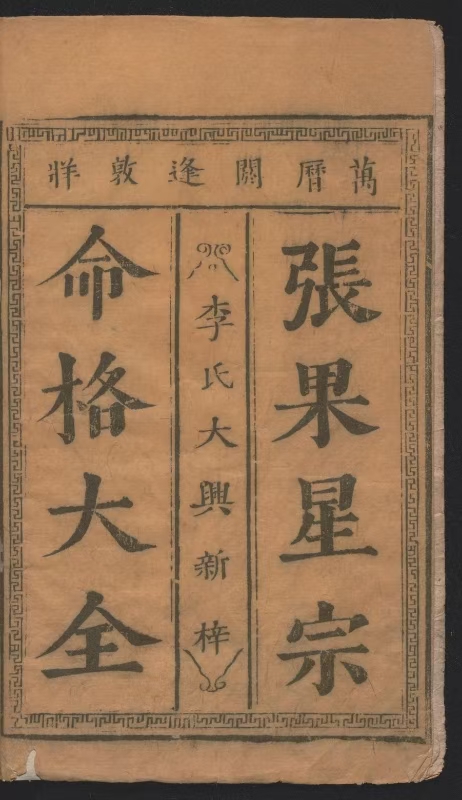 萬曆閼逢敦牂
張果星宗
李氏大興新梓
命格大全